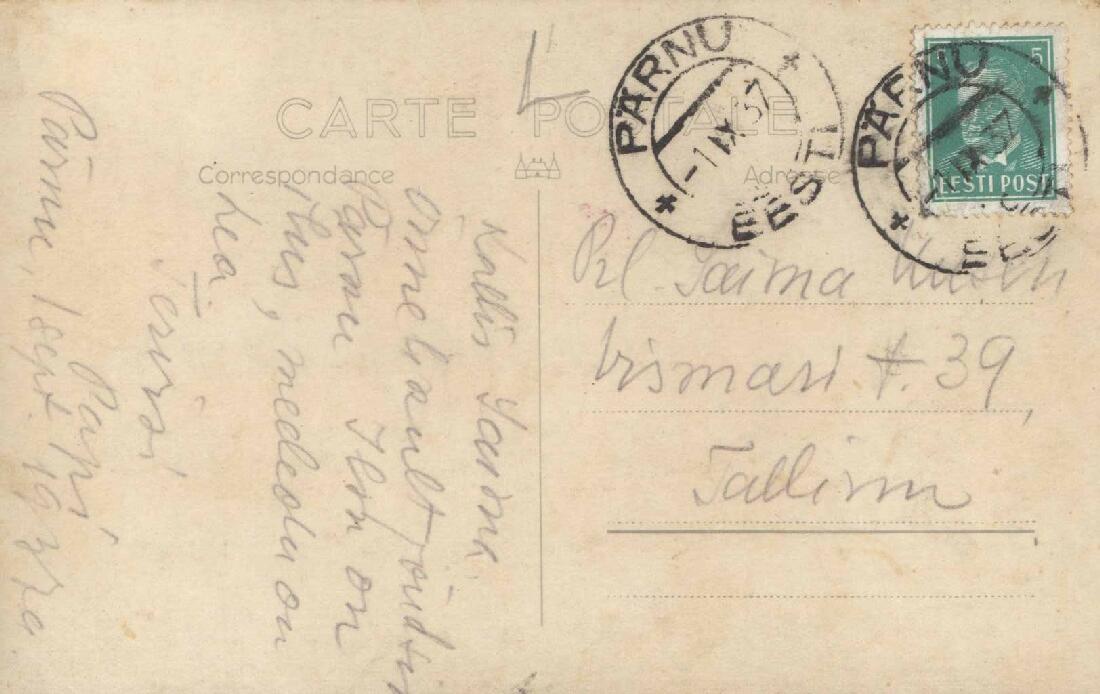 CARTE POSTALE
Correspondance
Adresse
PÄRNU
-1 IX 37
EESTI
PÄRNU
IX 37
EESTI
5
EESTI POST
Kallis Saima.
Õnnelikult jõudsi
Pärnu Ilm on
ilus, meeleolu on
hea.
Tervisi
Papsi
Pärnu, 1 sept. 1937a.
Prl. Saima
Vismari t. 39,
Tallinn